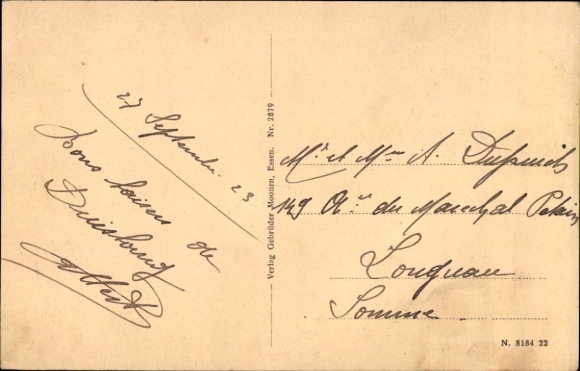 27 Septembre 23
Bons baisers de
Duisbourg
Albert
Verlag Gebrüder Moonen, Essen. Nr. 2879
Mr et Mme A.
129 du Marechal Petain
Longueau
Somme
N. 8184 22